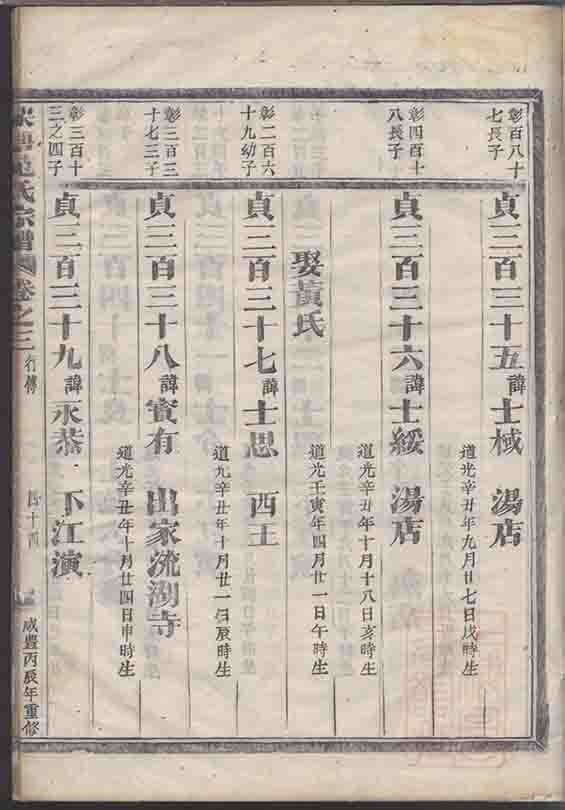 彰百八十
七長子
貞三百三十五諱士棫 湯店
道光辛丑年九月廿七日戌時生
彰四百十
八長子
貞三百三十六諱士綏 湯店
道光辛丑年十月十八日亥時生
娶黃氏
道光壬寅年四月廿一日午時生
彰二百六
十九幼子
貞三百三十七諱士思 西王
道光辛丑年十月廿一日辰時生
彰三百三
十七三子
貞三百三十八諱實有 出家流湖寺
道光辛丑年十月廿四日申時生
彰三百十
三之四子
貞三百三十九諱永恭 下江演
氏宗譜 卷之三 行傳
咸豐丙辰年重修